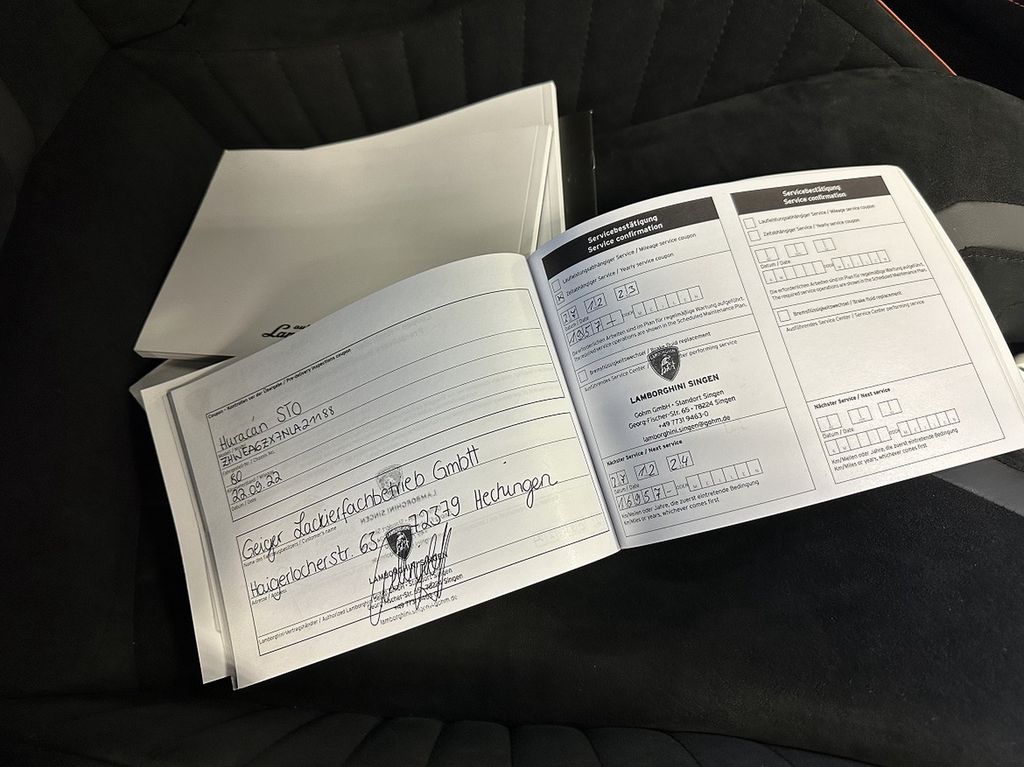 Coupon - Kontrollen vor der Übergabe / Pre-delivery inspections coupon
Huracán STO
ZHWEA6ZX7NLA21188
Fahrgestell-Nr. / Chassis No.
80
22.09.22
Datum / Date
Geiger Lackierfachbetrieb GmbH
Haigerlocherstr. 63 72379 Hechingen
Adresse / Address
LAMBORGHINI SINGEN
Georg-Fischer-Str. 65 - 78224 Singen
+49 7731 9463-0
lamborghini.singen@gohm.de
Servicebestätigung
Service confirmation
Laufleistungsabhängiger Service / Mileage service coupon
Zeitabhängiger Service / Yearly service coupon
27 12 23
Datum / Date
Die erforderlichen Arbeiten sind im Plan für regelmäßige Wartung aufgeführt.
The required service operations are shown in the Scheduled Maintenance Plan.
Bremsflüssigkeitswechsel / Brake fluid replacement
Ausführendes Service Center performing service
LAMBORGHINI SINGEN
Gohm GmbH - Standort Singen
Georg-Fischer-Str. 65 - 78224 Singen
+49 7731 9463-0
lamborghini.singen@gohm.de
Nächster Service / Next service
27 12 24
Datum / Date
16957-
Km/Meilen oder Jahre, die zuerst eintretende Bedingung
Km/Miles or years, whichever comes first
Servicebestätigung
Service confirmation
Laufleistungsabhängiger Service / Mileage service coupon
Zeitabhängiger Service / Yearly service coupon
Datum / Date
Die erforderlichen Arbeiten sind im Plan für regelmäßige Wartung aufgeführt.
The required service operations are shown in the Scheduled Maintenance Plan.
Bremsflüssigkeitswechsel / Brake fluid replacement
Ausführendes Service Center / Service Center performing service
Nächster Service / Next service
Datum / Date
Km/Meilen oder Jahre, die zuerst eintretende Bedingung
Km/Miles or years, whichever comes first